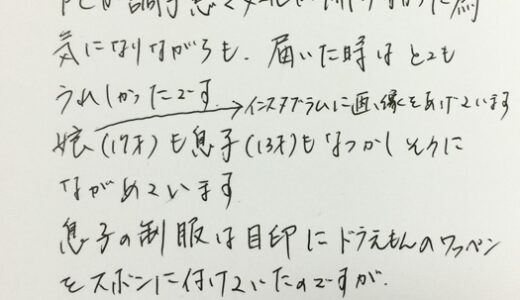 PCが調子悪くメールが開けなかった為
気になりながらも、届いた時はとても
うれしかったです。
→インスタグラムに画像をあげています
娘(17才)も息子(13才)もなつかしそうに
ながめています
息子の制服は目印にドラえもんのワッペン
をズボンに付けていたのですが、